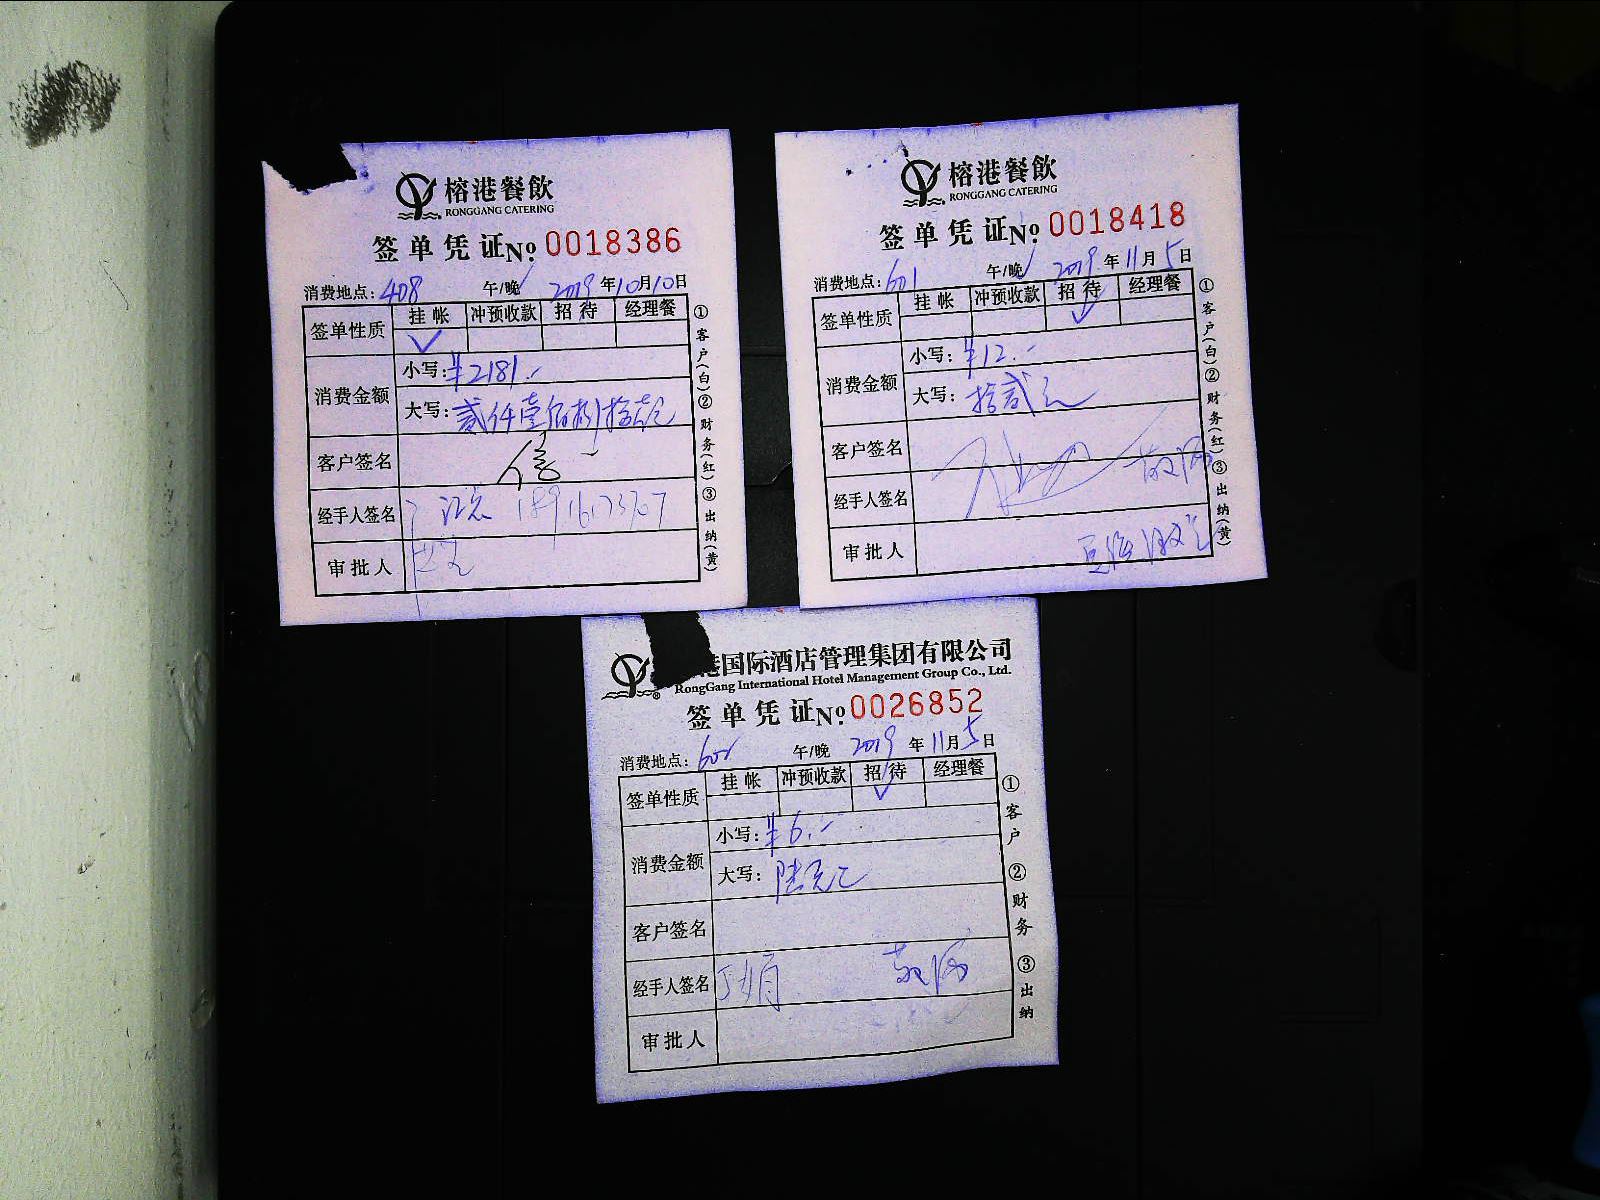 榕港餐飲
RONGGANG CATERING
签单凭证 № 0018386
消费地点: 408 午/晚 2019年10月10日
签单性质 挂帐 冲预收款 招待 经理餐
✓
消费金额 小写: ¥2181.-
大写: 贰仟壹佰捌拾壹元
客户签名
经手人签名
审批人
①客户(白)②财务(红)③出纳(黄)
榕港餐飲
RONGGANG CATERING
签单凭证 № 0018418
消费地点: 601 午/晚 2019年11月5日
签单性质 挂帐 冲预收款 招待 经理餐
✓
消费金额 小写: ¥12.-
大写: 拾贰元
客户签名
经手人签名
审批人
①客户(白)②财务(红)③出纳(黄)
港国际酒店管理集团有限公司
RongGang International Hotel Management Group Co., Ltd.
签单凭证 № 0026852
消费地点: 午/晚 2019年11月5日
签单性质 挂帐 冲预收款 招待 经理餐
✓
消费金额 小写: ¥6.-
大写: 陆元
客户签名
经手人签名
审批人
①客户 ②财务 ③出纳